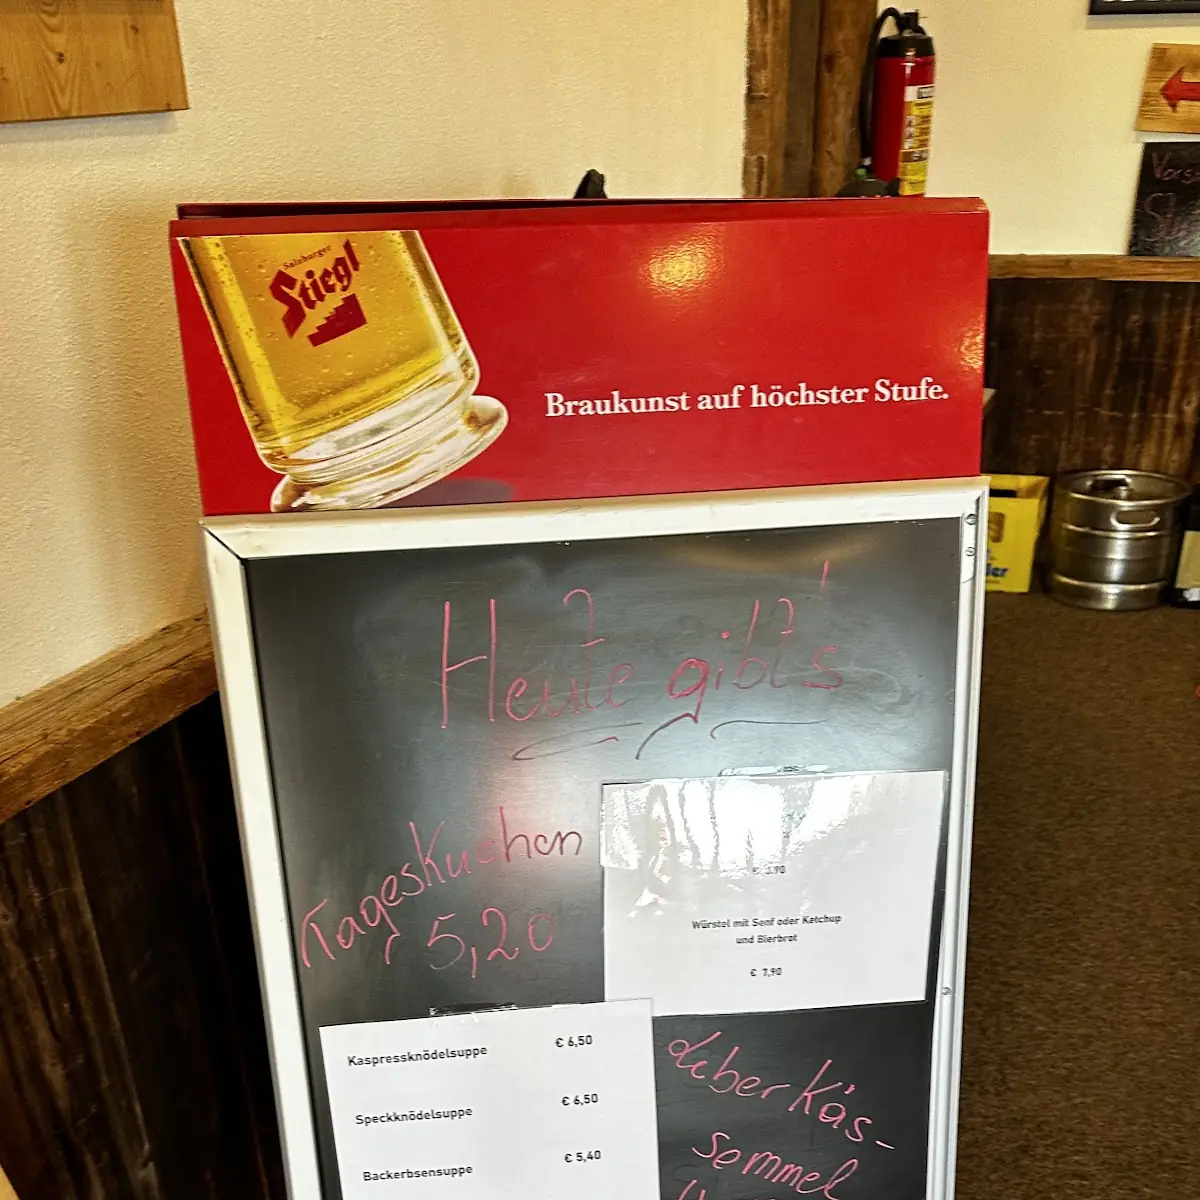 Salzburger
Stiegl
Braukunst auf höchster Stufe.
Heute gibt's
Tageskuchen
€ 5,20
Würstel mit Senf oder Ketchup
und Bierbrot
€ 7,90
Kaspressknödelsuppe € 6,50
Speckknödelsuppe € 6,50
Backerbsensuppe € 5,40
Leberkäs-
semmel